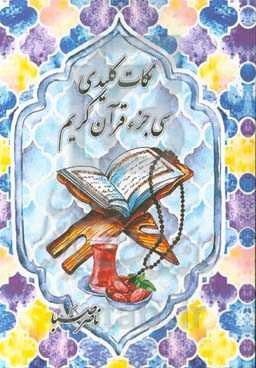 نکات کلیدی
سی جزء قرآن کریم
ناصر صبا